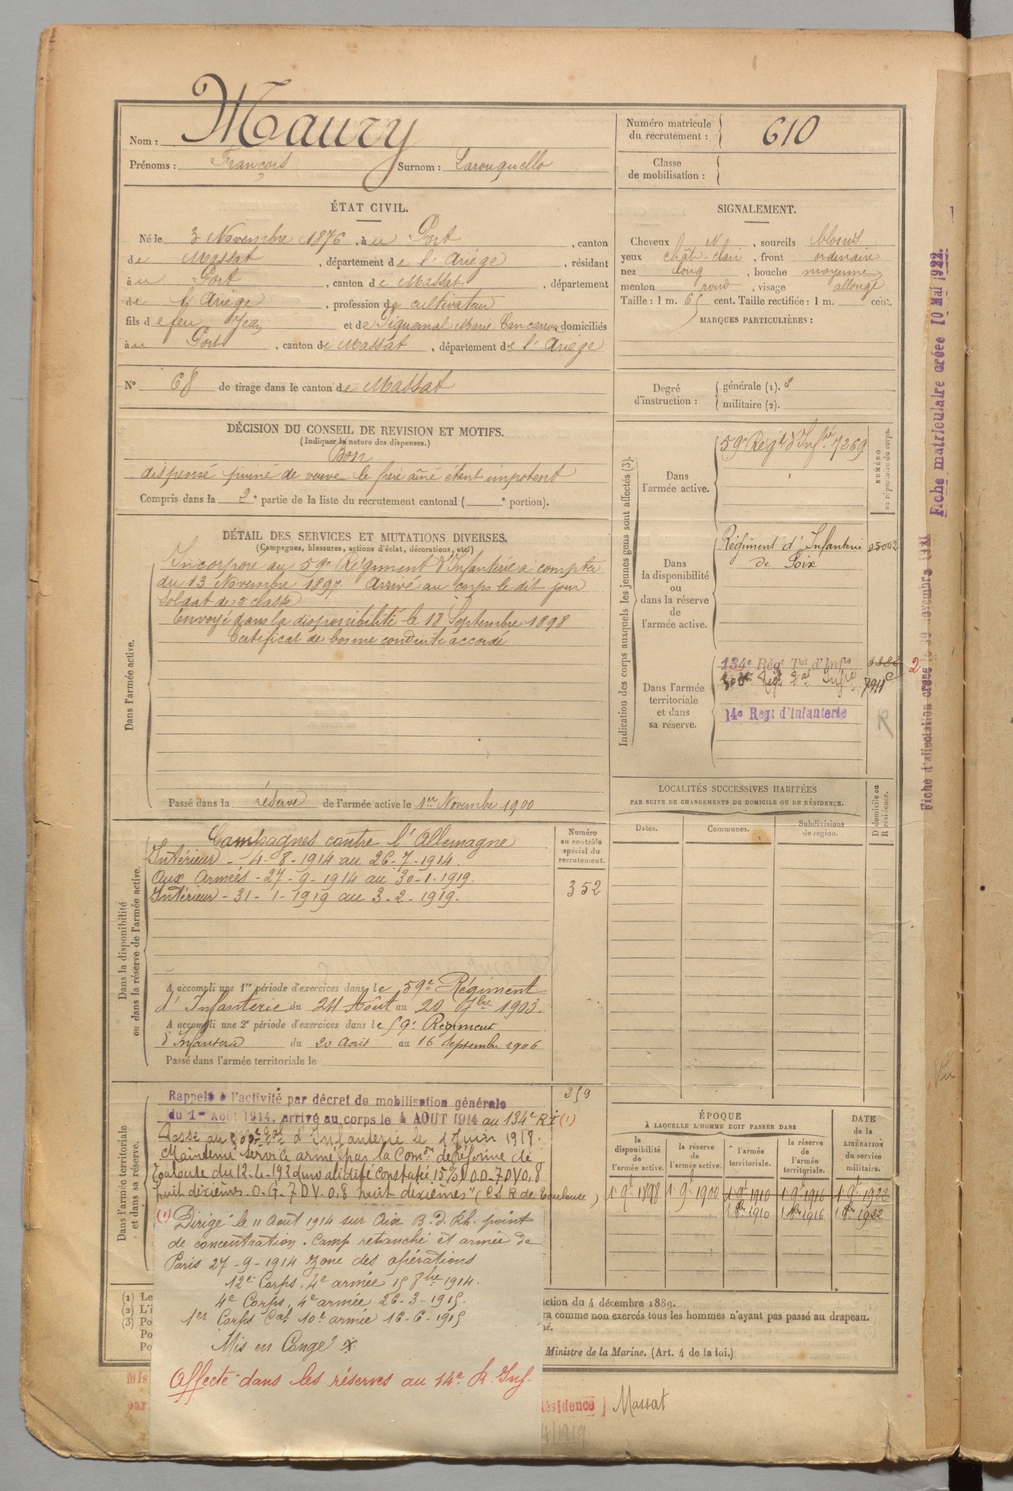 Nom : Maury
Prénoms : François Surnom : Larouquello
Numéro matricule du recrutement : 610
Classe de mobilisation :
ÉTAT CIVIL.
Né le 3 Novembre 1876, à u Port, canton
de Massat, département de l'Ariège, résidant
à u Port, canton de Massat, département
de l'Ariège, profession de cultivateur
fils de feu Jean et de Signanal Marie domiciliés
à u Port, canton de Massat, département de l'Ariège
N° 68 de tirage dans le canton de Massat
SIGNALEMENT.
Cheveux N, sourcils blonds
yeux chât. clair, front ordinaire
nez long, bouche moyenne
menton rond, visage allongé
Taille : 1 m. 65 cent. Taille rectifiée : 1 m. cent.
MARQUES PARTICULIÈRES :
Degré d'instruction :
générale (1). 3
militaire (2).
DÉCISION DU CONSEIL DE REVISION ET MOTIFS.
(Indiquer la nature des dispenses.)
Bon
dispensé puiné de veuve le frère aîné étant impotent
Compris dans la 2e partie de la liste du recrutement cantonal ( e portion).
DÉTAIL DES SERVICES ET MUTATIONS DIVERSES.
(Campagnes, blessures, actions d'éclat, décorations, etc.)
Dans l'armée active.
Incorporé au 59e Régiment d'Infanterie à compter
du 13 Novembre 1897. Arrivé au corps le dit jour
soldat de 2e classe
Envoyé dans la disponibilité le 18 Septembre 1898
Certificat de bonne conduite accordé
Passé dans la réserve de l'armée active le 1er Novembre 1900
Indication des corps auxquels les jeunes gens sont affectés (3).
NUMÉRO au répertoire du corps.
Dans l'armée active.
59e Régt d'Infie 7269
Dans la disponibilité ou dans la réserve de l'armée active.
Régiment d'Infanterie
de Foix
Dans l'armée territoriale et dans sa réserve.
134e Régt Tal d'Infie
7911
14e Regt d'Infanterie
R
LOCALITÉS SUCCESSIVES HABITÉES
PAR SUITE DE CHANGEMENTS DE DOMICILE OU DE RÉSIDENCE.
Dates. Communes. Subdivisions de région. D domicile ou R résidence.
Dans la disponibilité ou dans la réserve de l'armée active.
Numéro au contrôle spécial du recrutement.
352
Campagnes contre l'Allemagne
Intérieur - 4-8-1914 au 26-7-1914.
Aux Armées - 27-9-1914 au 30-1-1919.
Intérieur - 31-1-1919 au 3-2-1919.
A accompli une 1re période d'exercices dans le 59e Régiment
d'Infanterie du 24 Août au 20 7bre 1903.
A accompli une 2e période d'exercices dans le 59e Régiment
d'Infanterie du 20 Août au 16 Septembre 1906
Passé dans l'armée territoriale le
Dans l'armée territoriale et dans sa réserve.
259
Rappelé à l'activité par décret de mobilisation générale
du 1er Août 1914, arrivé au corps le 4 AOUT 1914 au 134e R.I (1)
Passé au d'Infanterie le 1 Juin 1918.
Maintenu service armé par la Comon de Réforme de
huit dixièmes. O.G. 7 D V.O.8 huit dixièmes" (C.S.R de Toulouse)
(1) Dirigé le 11 Août 1914 sur Aix point
de concentration. Camp retranché et armée de
Paris 27-9-1914 zone des opérations
12e Corps. 4e armée 15 8bre 1914.
4e Corps. 4e armée 26-3-1915.
1er Corps Cal 10e armée 16-6-1915
Mis en Congé
Affecté dans les réserves au 14e R. Inf.
ÉPOQUE
À LAQUELLE L'HOMME DOIT PASSER DANS
la disponibilité de l'armée active. la réserve de l'armée active. l'armée territoriale. la réserve de l'armée territoriale.
DATE de la LIBÉRATION du service militaire.
1 9e 1898 1 9e 1900 1 9e 1910 1 9e 1916 1 9e 1922
1 8bre 1910 1 8bre 1916 1 8bre 1922
ction du 4 décembre 1889.
ra comme non exercés tous les hommes n'ayant pas passé au drapeau.
Ministre de la Marine. (Art. 4 de la loi.)
Résidence } Massat
/1919
Fiche matriculaire créée 10 Mai 1922.